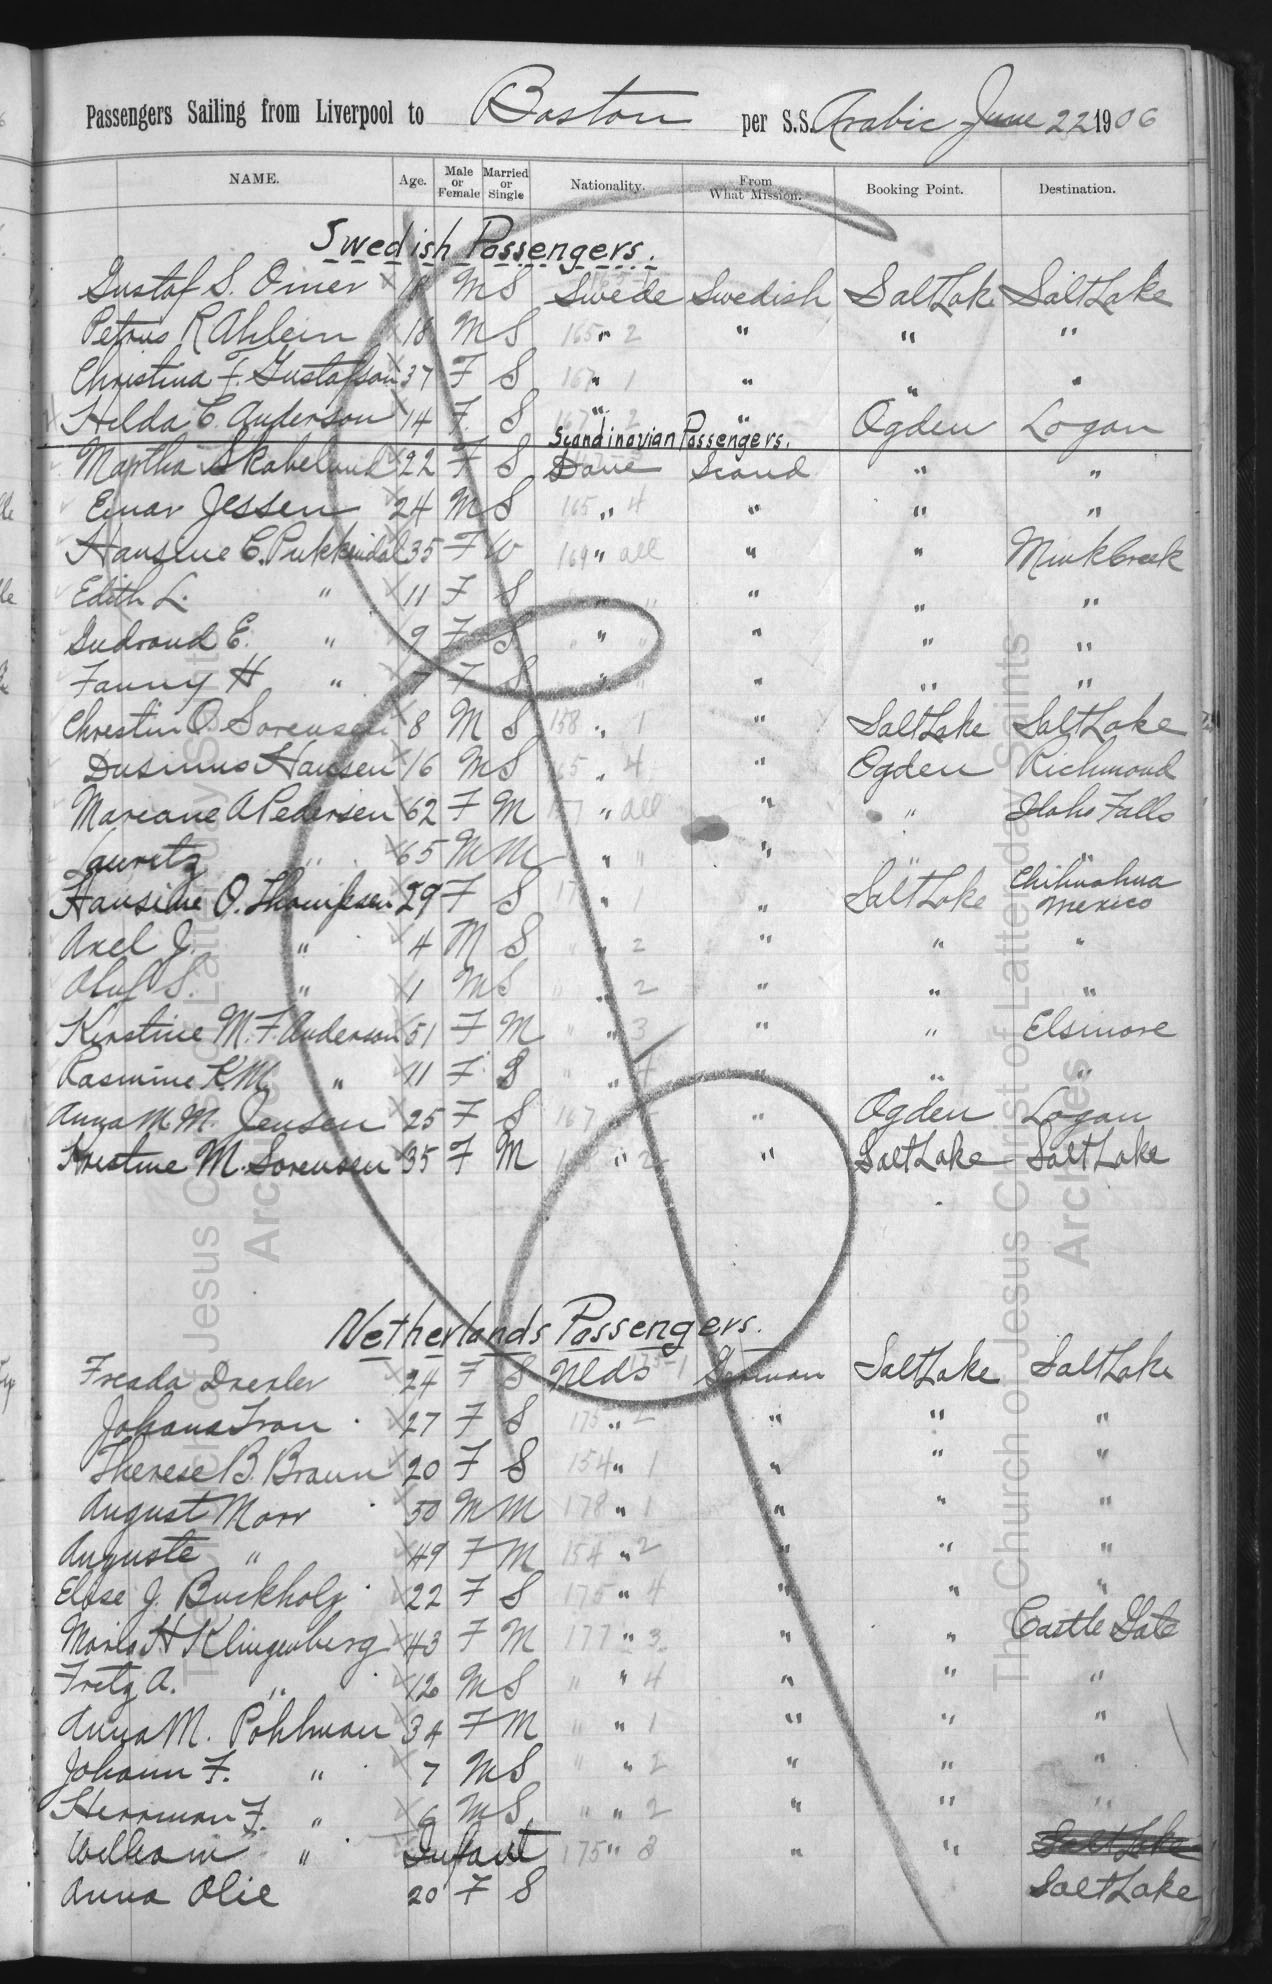 Passengers Sailing from Liverpool to Boston per S.S. Arabic June 22 1906
NAME. Age. Male or Female Married or Single Nationality. From What Mission. Booking Point. Destination.
Swedish Passengers.
Gustaf S. Omer M S Swede Swedish Salt Lake Salt Lake
Petrus R Ahlein 18 M S 165 " 2 " " "
Christina F. Gustafson 37 F S 167 " 1 " " "
Hilda C. Anderson 14 F S 167 " 2 " Ogden Logan
Scandinavian Passengers.
Martha Skabelund 22 F S Dane Scand " "
Einar Jessen 24 M S 165 " 4 " " "
Hansine C. 35 F W 169 " all " " Mink Creek
Edith L. " 11 F S " " " "
Gudrond E. " 9 F S " " " "
Fanny H " 7 F S " " " "
Christin O. Sorensen 8 M S 158 " 1 " Salt Lake Salt Lake
Dusinus Hansen 16 M S " 4 " Ogden Richmond
Mareane A Pedersen 62 F M " all " " Idaho Falls
Lauretz " 65 M M " " " " "
Hansine O. Thompsen 29 F S " 1 " Salt Lake Chihuahua Mexico
Axel J. " 4 M S " " 2 " " "
Oluf S. " 1 M S " " 2 " " "
Kirstine M. F. Anderson 51 F M " " 3 " " Elsinore
Rasmine K. M. " 11 F S " " 4 " " "
Anna M. M. Jensen 25 F S 167 " Ogden Logan
Kristine M. Sorensen 35 F M " 2 " Salt Lake Salt Lake
Netherlands Passengers.
Freada Drexler 24 F S Nlds 1 German Salt Lake Salt Lake
Johana Tron 27 F S 175 " 2 " " "
Therese B. Braun 20 F S 154 " 1 " " "
August Marr 50 M M 178 " 1 " " "
Auguste " 49 F M 154 " 2 " " "
Elise J. Buckholz 22 F S 175 " 4 " " "
H Klingenberg 43 F M 177 " 3 " " Castle Gate
Fritz A. " 12 M S " " 4 " " "
Anna M. Pohlman 34 F M " " 1 " " "
Johann F. " 7 M S " " 2 " " "
Herrman F. " 6 M S " " 2 " " "
William " Infant 175 " 3 " " Salt Lake
Anna Olie 20 F S Salt Lake
The Church of Jesus Christ of Latter-day Saints
Archives
The Church of Jesus Christ of Latter-day Saints
Archives